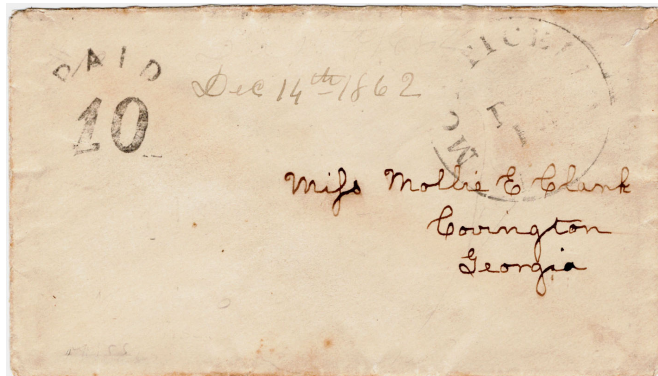 PAID
10
Dec 14th 1862
Miss Mollie E Clark
Covington
Georgia